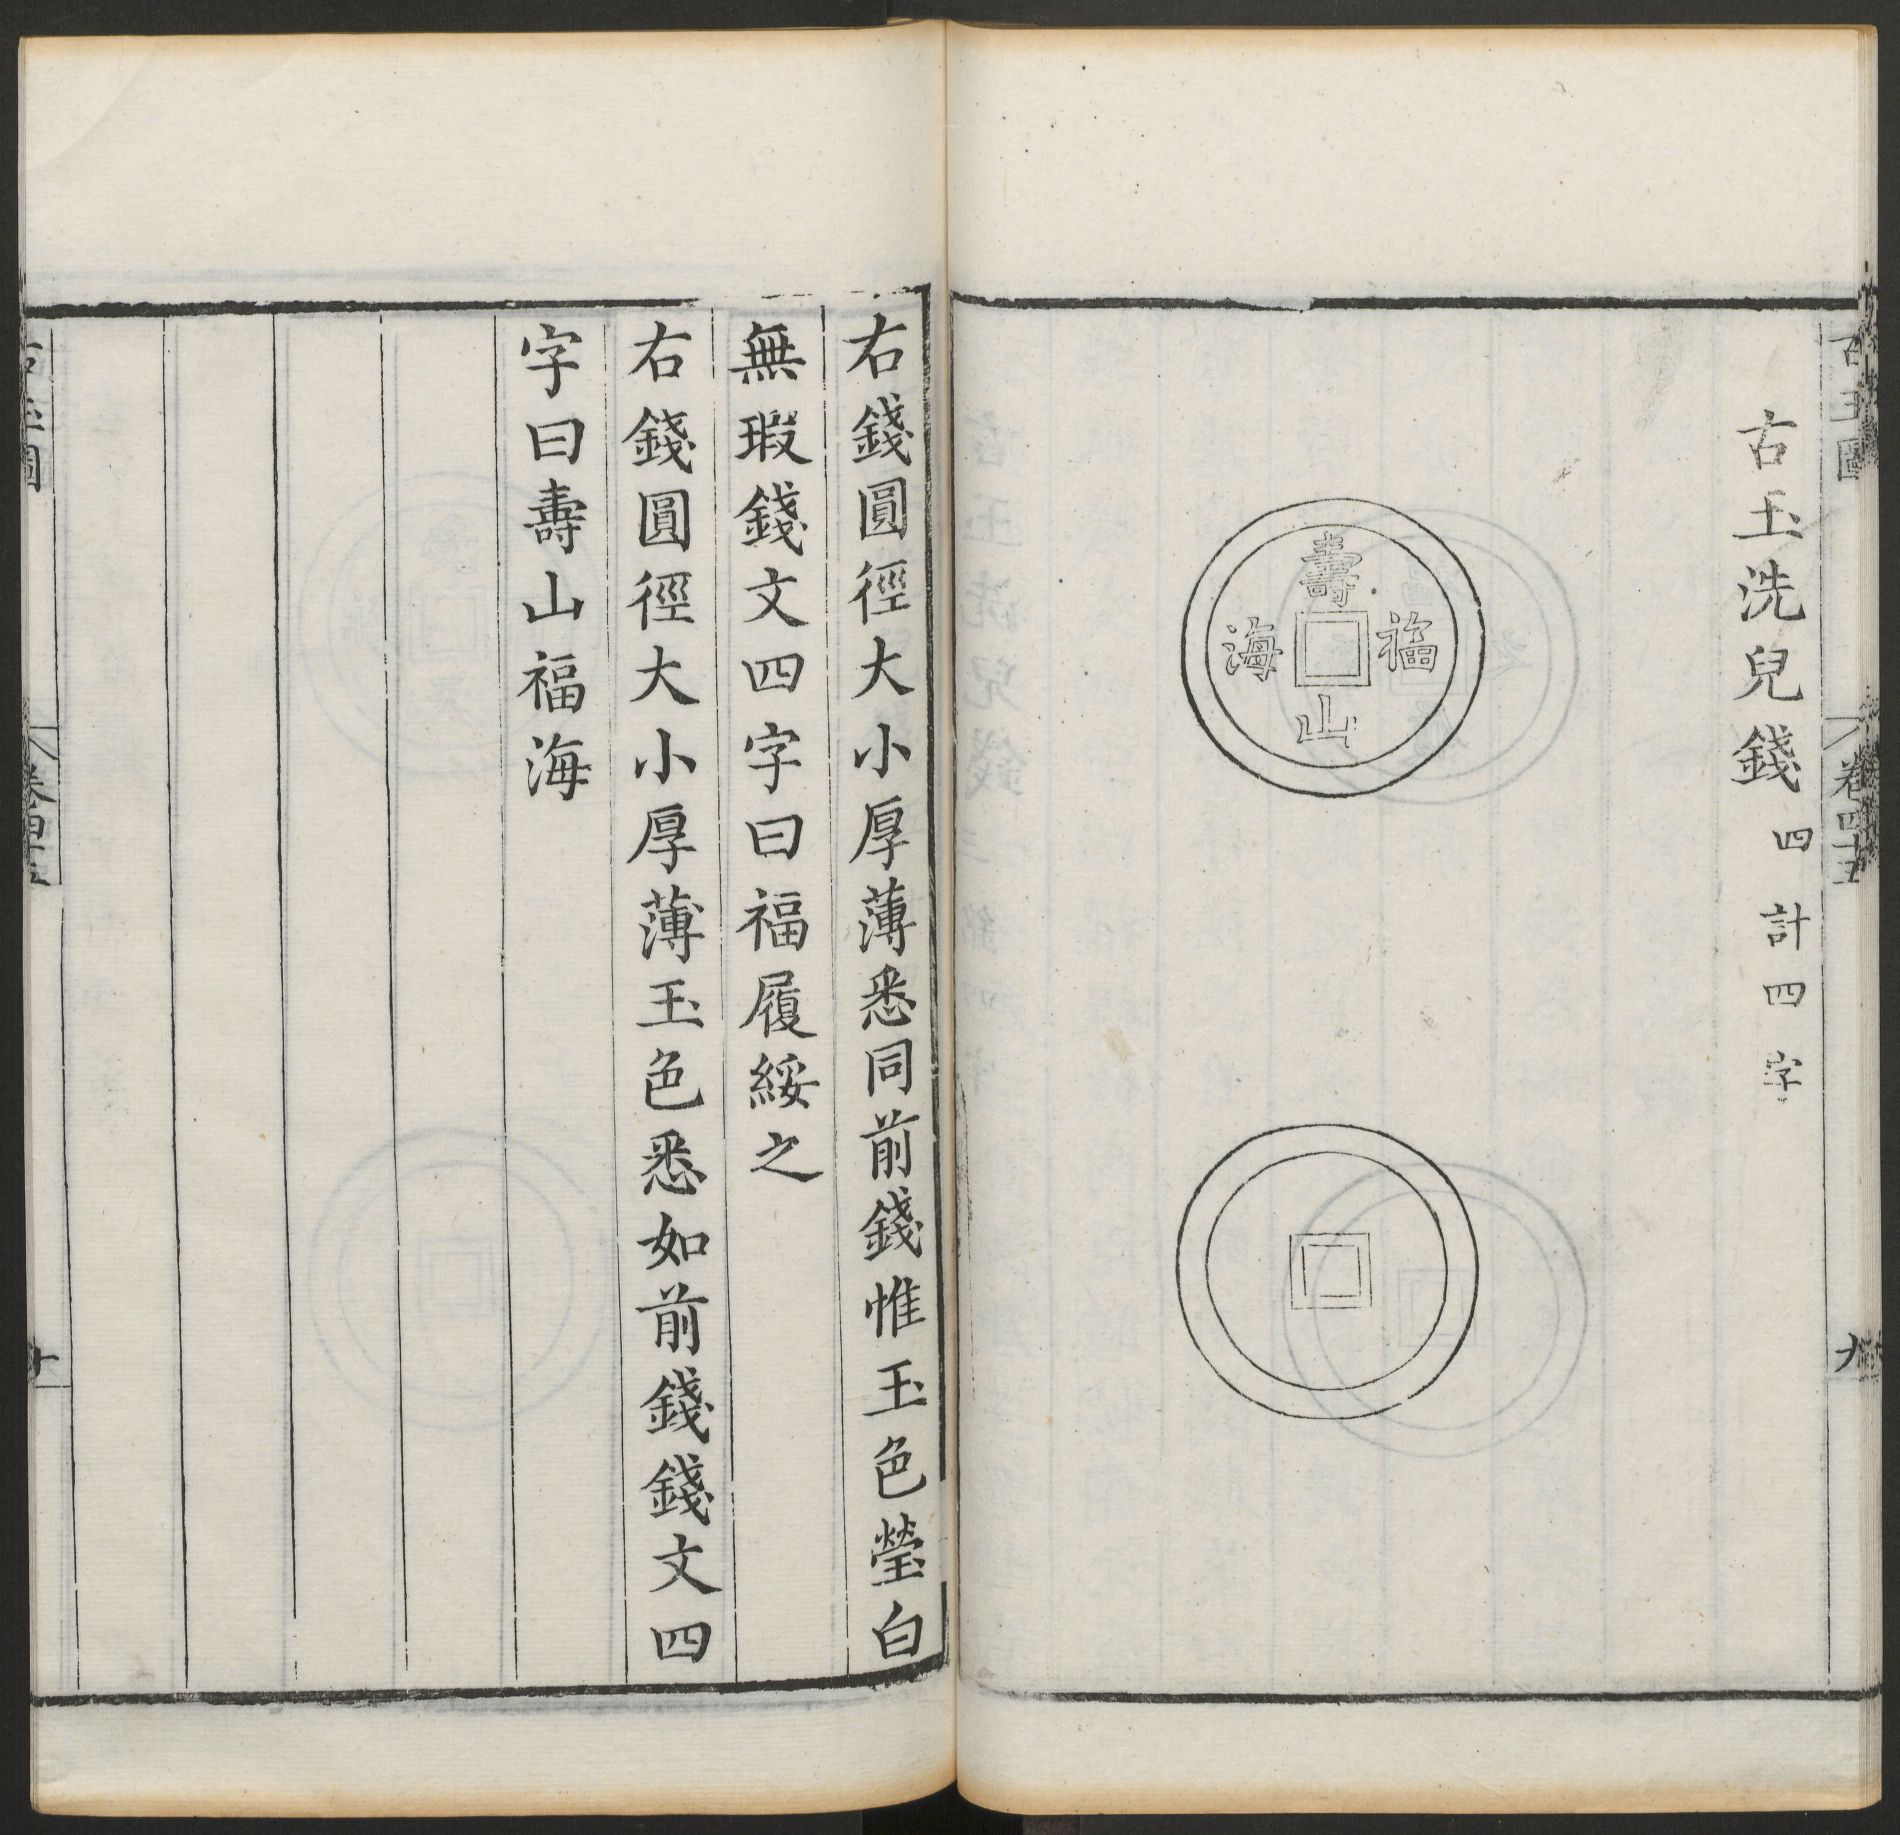 古玉圖
卷四十五
九
古玉洗兒錢四 計四字
壽
福
海
山
右錢圓徑大小厚薄悉同前錢惟玉色瑩白
無瑕錢文四字曰福履綏之
右錢圓徑大小厚薄玉色悉如前錢錢文四
字曰壽山福海
古玉圖
卷四十五
十